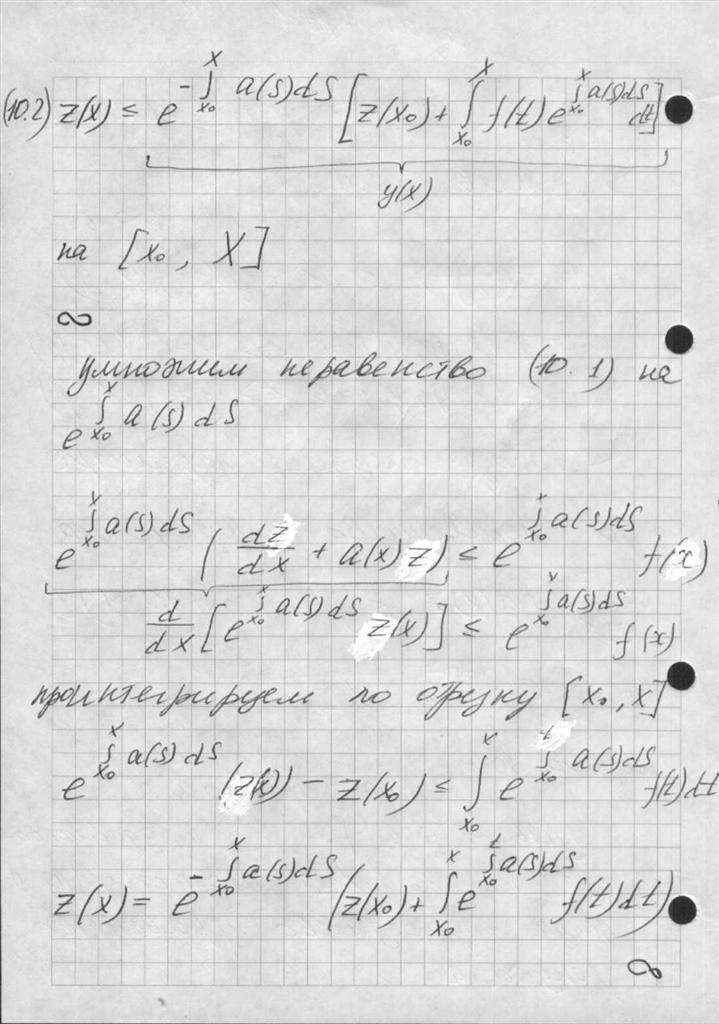 (10.2) z(x) ≤ e^{-∫_{x₀}^{x} a(s)ds} [z(x₀) + ∫_{x₀}^{x} f(t) e^{∫_{x₀}^{x} a(s)ds} dt]
y(x)
на [x₀, X]
умножим неравенство (10.1) на
e^{∫_{x₀}^{x} a(s)ds}
e^{∫_{x₀}^{x} a(s)ds} (dz/dx + a(x)z) ≤ e^{∫_{x₀}^{x} a(s)ds} f(x)
d/dx [e^{∫_{x₀}^{x} a(s)ds} z(x)] ≤ e^{∫_{x₀}^{x} a(s)ds} f(x)
проинтегрируем по отрезку [x₀, x]
e^{∫_{x₀}^{x} a(s)ds} (z(x)) - z(x₀) ≤ ∫_{x₀}^{x} e^{∫_{x₀}^{t} a(s)ds} f(t)dt
z(x) = e^{-∫_{x₀}^{x} a(s)ds} (z(x₀) + ∫_{x₀}^{x} e^{∫_{x₀}^{t} a(s)ds} f(t)dt)